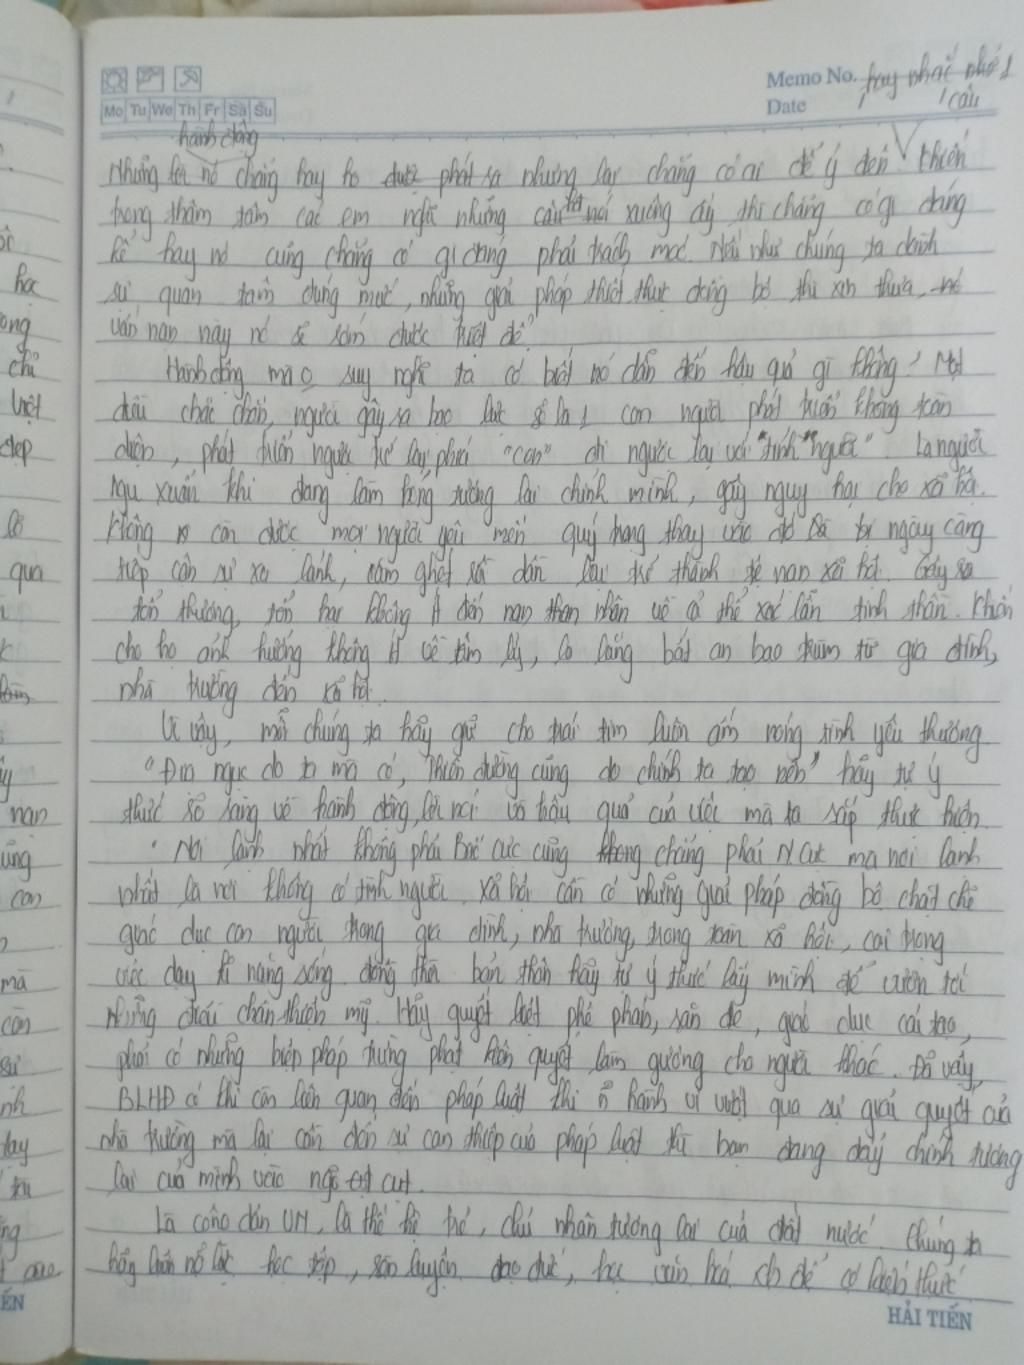 Memo No. hay nhắc nhở 1
Date câu
Mo Tu We Th Fr Sa Su
hành động
Những lời nó chẳng hay ho được phát ra nhưng lại chẳng có ai để ý đến khiến
trong thâm tâm các em nghĩ những câu nói xuông ấy thì chẳng có gì đáng
kể hay nó cũng chẳng có gì đáng phải trách móc. Nếu như chúng ta dành
sự quan tâm đúng mực, những giải pháp thiết thực đồng bộ thì xin thưa,
vấn nạn này nó sẽ sớm được triệt để.
Hành động mà o suy nghĩ ta có biết nó dẫn đến hậu quả gì không? Một
điều chắc chắn, người gây ra bạo lực sẽ là 1 con người phát triển không toàn
diện, phát triển người trẻ lại phải "con" đi ngược lại với "tính "người". Là người
ngu xuẩn khi đang làm hỏng tương lai chính mình, gây nguy hại cho xã hội.
Không còn được mọi người yêu mến quý trọng, thay vào đó là bị ngày càng
tiếp cận sự xa lánh, căm ghét rồi dần lại trở thành tệ nạn xã hội. Gây ra
tổn thương, tổn hại không ít đến nạn nhân về cả thể xác lẫn tinh thần. Khiến
cho họ ảnh hưởng không ít về tâm lý, lo lắng bất an bao trùm từ gia đình,
nhà trường đến xã hội.
Vì vậy, mỗi chúng ta hãy giữ cho trái tim luôn ấm nóng tình yêu thương
"Địa ngục do ta mà có, Thiên đường cũng do chính ta tạo nên" hãy tự ý
thức rõ ràng về hành động, lời nói và hậu quả của việc mà ta sắp thực hiện.
"Nơi lạnh nhất không phải Bắc cực cũng chẳng phải N cực mà nơi lạnh
nhất là nơi không có tình người. xã hội cần có những giải pháp đồng bộ chặt chẽ
giáo dục con người trong gia đình, nhà trường, trong toàn xã hội, coi trọng
việc dạy kĩ năng sống. đồng thời bản thân hãy tự ý thức lấy mình để vươn tới
những điều chân thiện mỹ. Hãy quyết liệt phê phán, răn đe, giáo dục cải tạo,
phải có những biện pháp trừng phạt kiên quyết làm gương cho người khác. Đã vậy,
BLHĐ có khi còn liên quan đến pháp luật khi hành vi vượt qua sự giải quyết của
nhà trường mà lại cần đến sự can thiệp của pháp luật thì bạn đang đẩy chính tương
lai của mình vào ngõ cụt.
Là công dân VN, là thế hệ trẻ, chủ nhân tương lai của đất nước chúng ta
hãy luôn nỗ lực học tập, rèn luyện đạo đức, học văn hoá để có kiến thức
HẢI TIẾN